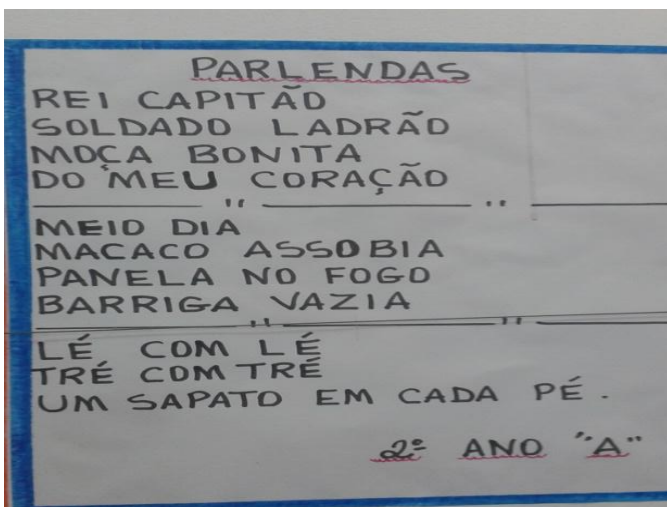 PARLENDAS
REI CAPITÃO
SOLDADO LADRÃO
MOÇA BONITA
DO MEU CORAÇÃO
" "
MEIO DIA
MACACO ASSOBIA
PANELA NO FOGO
BARRIGA VAZIA
" "
LÉ COM LÉ
TRÉ COM TRÉ
UM SAPATO EM CADA PÉ.
2º ANO "A"